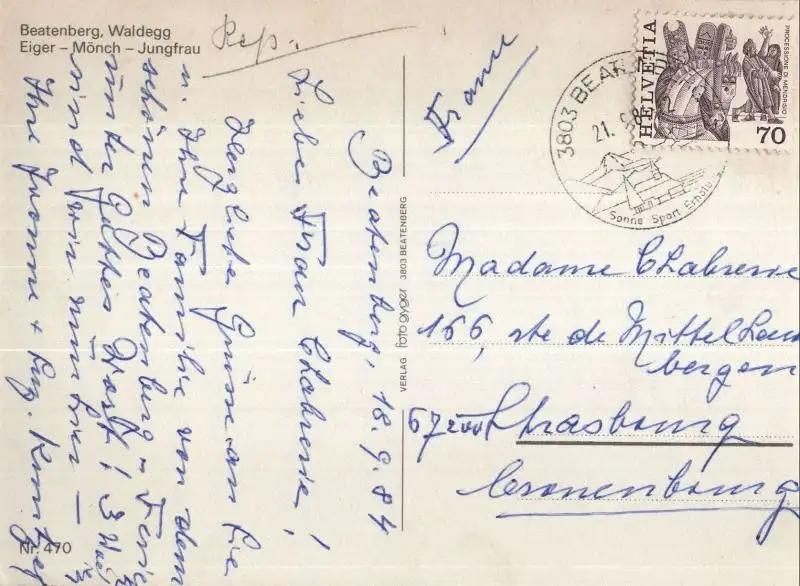 Beatenberg, Waldegg
Eiger – Mönch – Jungfrau
Rép.
Beatenberg, 18.9.84
Liebe Frau Chabrerie!
Herzliebe Grüsse an Sie
u. Ihre Familie von dem
schönen Beatenberg – Ferie
unter Gottes Wort! 3
sind wir nun hier —
Ihre Yvonne +
Nr. 470
VERLAG foto gyger 3803 BEATENBERG
France
3803 BEAT
21. 9. 84
Sonne Sport Erholu
HELVETIA
PROCESSIONE DI MENDRISIO
70
Madame Chabrerie
166, rte de Mittelhaus
bergen
67200 Strasbourg
Cronenbourg